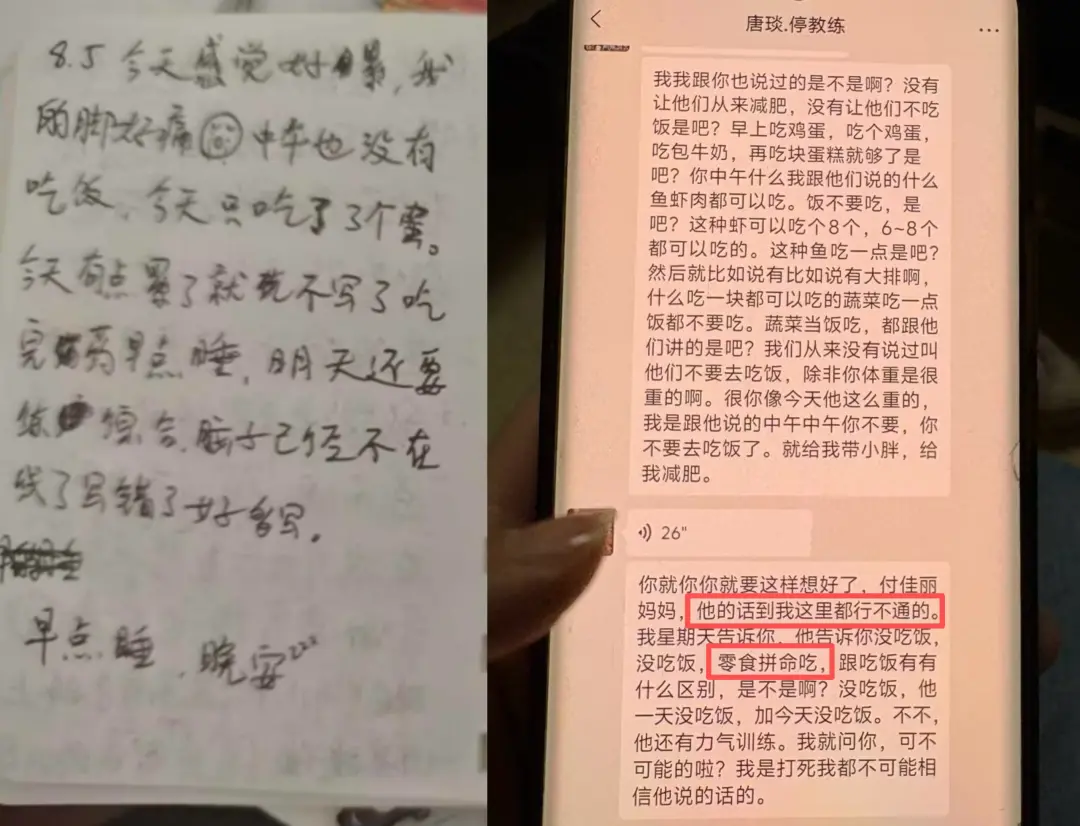 8.5 今天感觉好累,我
的脚好痛 中午也没有
吃饭,今天只吃了3个蛋。
今天有点累了就先不写了吃
完药早点睡,明天还要
练综合,脑子已经不在
线了写错了好多写。
早点睡,晚安zzz
唐琰.停教练
我我跟你也说过的是不是啊?没有
让他们从来减肥,没有让他们不吃
饭是吧?早上吃鸡蛋,吃个鸡蛋,
吃包牛奶,再吃块蛋糕就够了是
吧?你中午什么我跟他们说的什么
鱼虾肉都可以吃。饭不要吃,是
吧?这种虾可以吃个8个,6~8个
都可以吃的。这种鱼吃一点是吧?
然后就比如说有比如说有大排啊,
什么吃一块都可以吃的蔬菜吃一点
饭都不要吃。蔬菜当饭吃,都跟他
们讲的是吧?我们从来没有说过叫
他们不要去吃饭,除非你体重是很
重的啊。很你像今天他这么重的,
我是跟他说的中午中午你不要,你
不要去吃饭了。就给我带小胖,给
我减肥。
26"
你就你你就要这样想好了,付佳丽
妈妈,他的话到我这里都行不通的。
我星期天告诉你、他告诉你没吃饭,
没吃饭,零食拼命吃,跟吃饭有有
什么区别,是不是啊?没吃饭,他
一天没吃饭,加今天没吃饭。不不,
他还有力气训练。我就问你,可不
可能的啦?我是打死我都不可能相
信他说的话的。